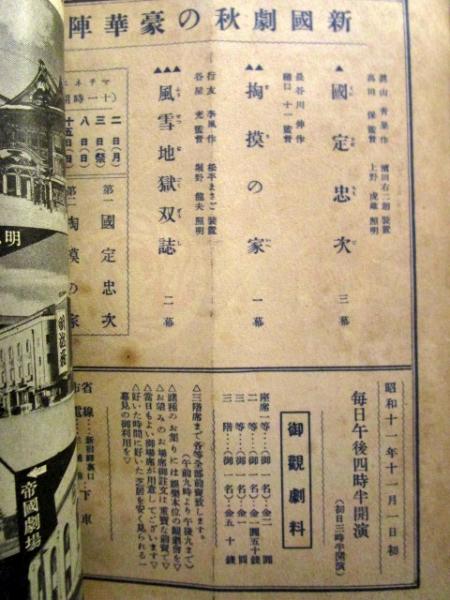 新國劇秋の豪華陣
▲國定忠次 三幕
眞山靑果作
高田保監督
濱田右二郎裝置
上野虎雄照明
▲▲掏摸の家 一幕
長谷川伸作
樋口十一監督
▲▲▲風雪地獄双誌 二幕
行友李風作
谷屋充監督
松平まさご裝置
堀野龍夫照明
マチネエ
二日(月)
三日(祭)
八日(日)
十五日(日)
第一 國定忠次
第二 掏摸の家
昭和十一年十一月一日初
毎日午後四時半開演
(初日三時半開演)
御觀劇料
座席一等…(御一名)金二圓
二等…(御一名)金一圓五十錢
三等…(御一名)金一圓
三階…(御一名)金五十錢
△三階席まで各等全部前賣致します。
(午前九時より午後九時まで)
△お望みのお場席御註文は重寶な前賣で▽
△當日もよい御場席が用意してございます▽
△好いた時間に好いた芝居を安く見られる
幕見の御利用を▽
省線…新橋驛裏口
市電
下車
明
帝國劇場